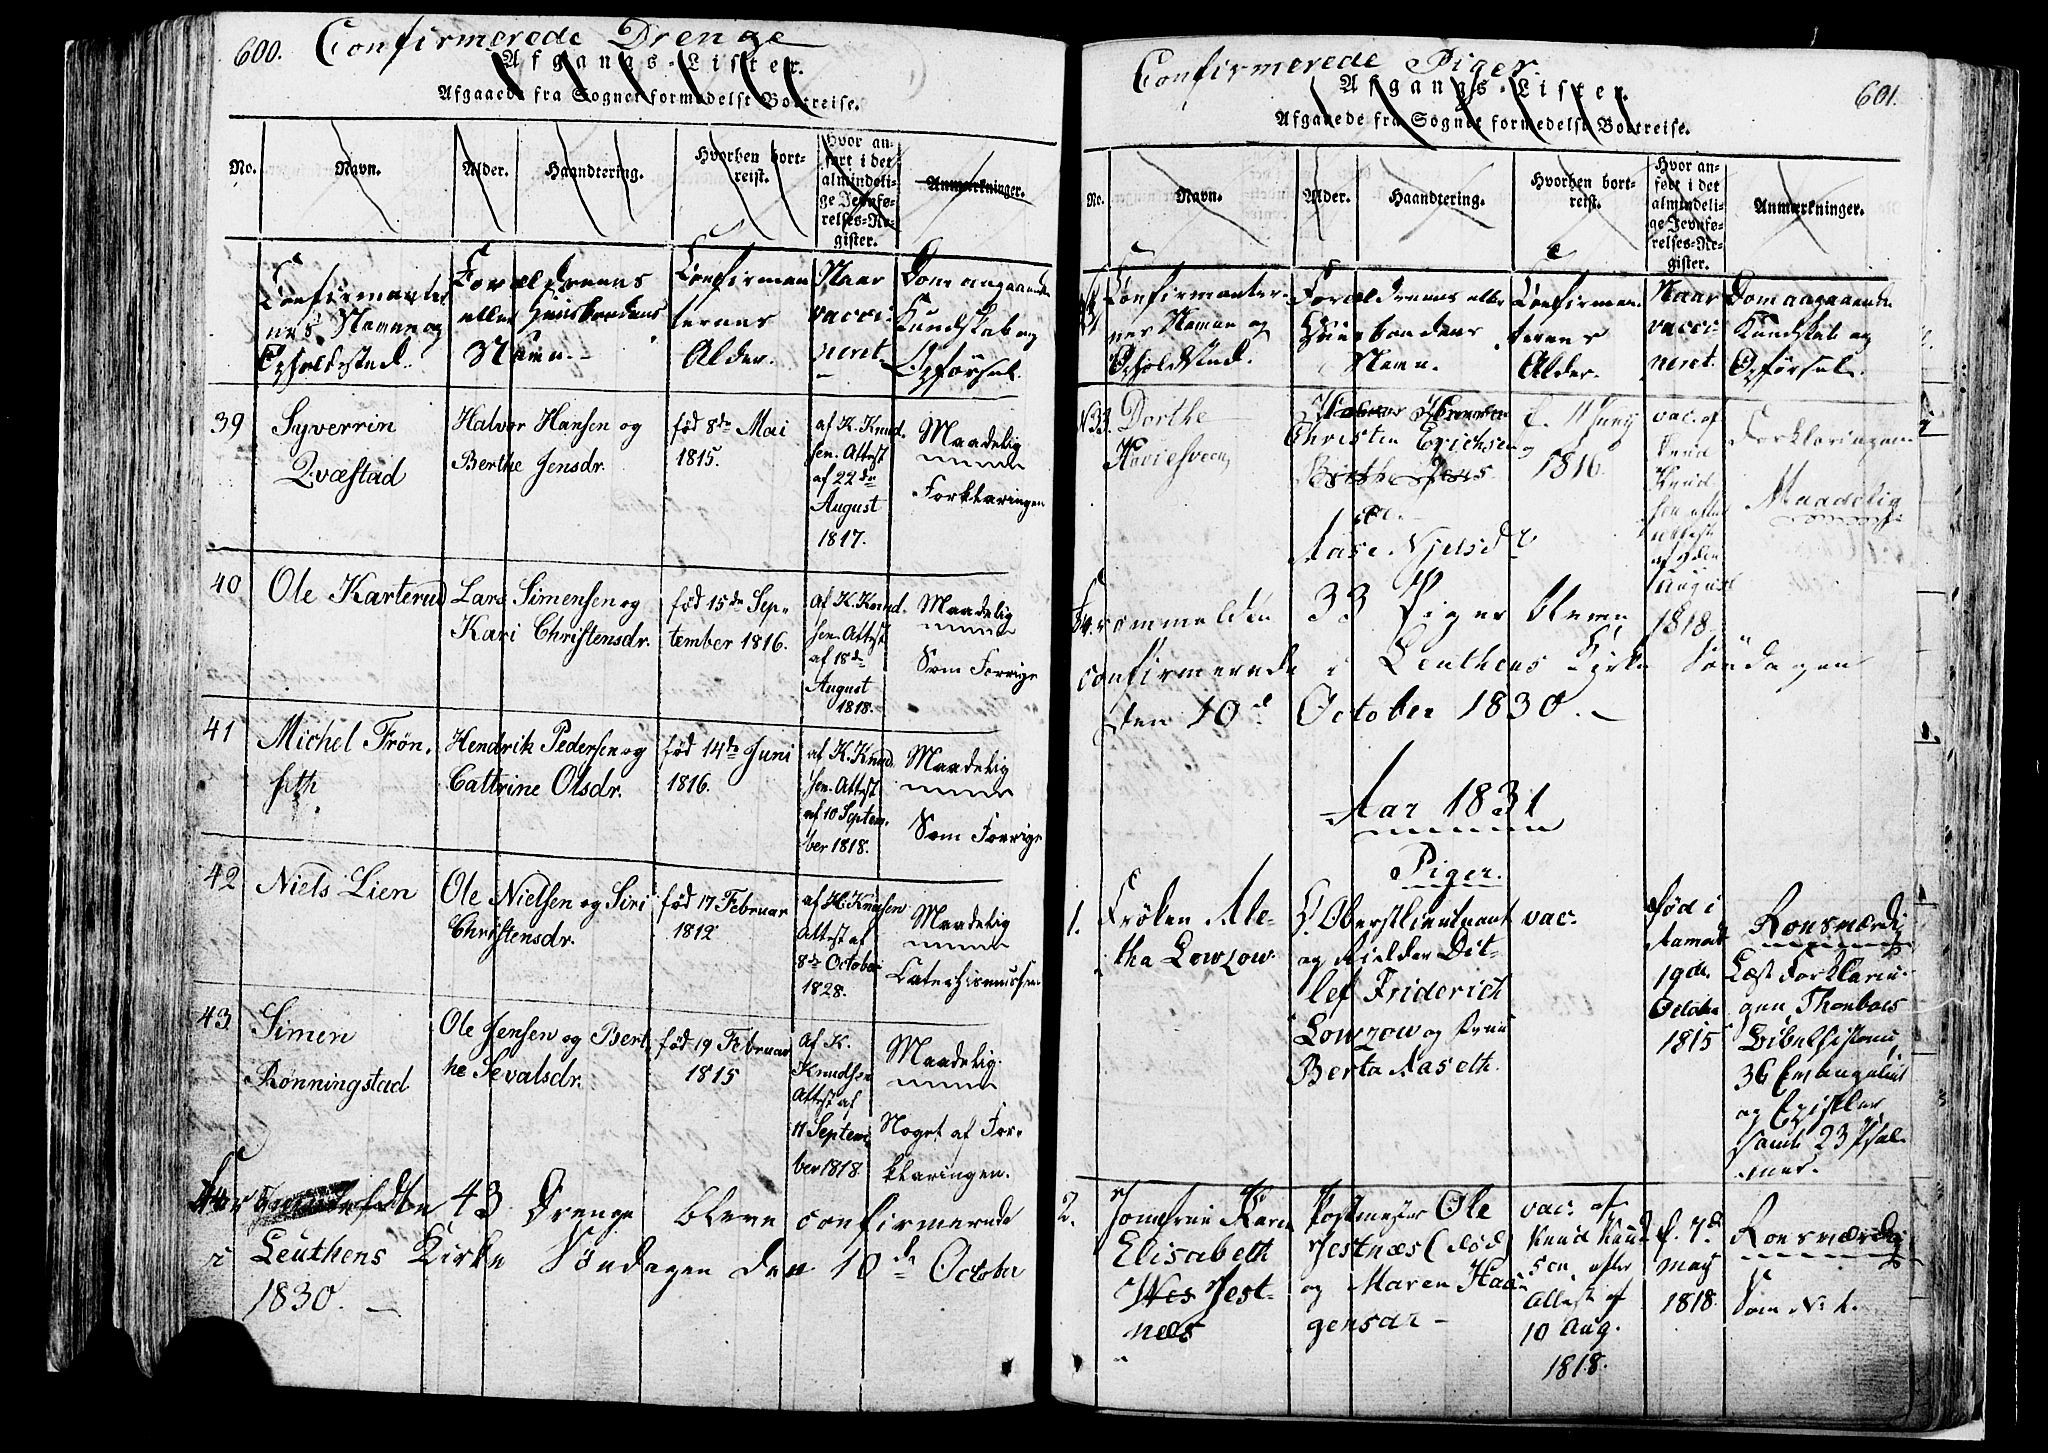 600. Confirmerede Drenge
Afgangs-Lister.
Afgaaede fra Sognet formedelst Bortreise.
No. Navn. Alder. Haandtering. Hvorhen bort-
reist. Hvor an-
ført i det
almindeli-
ge Jevnfø-
relses-Re-
gister. Anmærkninger.
Confirmanter-
nes Navne og
Opholdsted.
Forældrenes
eller Huusbondens
Navn.
Confirman
ternes
Alder.
Naar
vacci-
neret.
Dom angaaende
Kundskab og
Opførsel.
39 Syverrin
Qvæstad
Halvor Hansen og
Berthe Jensdr.
fød 8de Mai
1815.
af K. Knud-
sen. Attest
af 22de
August
1817.
Maadelig
Forklaringen
40 Ole Karterud
Lars Simensen og
Kari Christensdr.
fød 15de Sep-
tember 1816.
af K. Knud-
sen. Attest
af 18de
August
1818.
Maadelig
Som Forrige
41 Michel Frön-
seth
Hendrik Pedersen og
Cattrine Olsdr.
fød 14de Juni
1816.
af K. Knud-
sen. Attest
af 10 Septem-
ber 1818.
Maadelig
Som Forrige
42 Niels Lien
Ole Nielsen og Siri
Christensdr.
fød 17 Februar
1812
af H. Knudsen
Attest af
8de October
1828.
Maadelig
Catechismussen
43 Simen
Rønningstad
Ole Jensen og Bert-
he Sevalsdr.
fød 19 Februar
1815
af K.
Knudsen
Attest af
11 Septem-
ber 1818.
Maadelig
Noget af For-
klaringen.
43 Drenge bleve confirmerede
i Leuthens Kirke Søndagen den 10de October
1830.
Confirmerede Piger 601.
Afgangs-Lister.
Afgaaede fra Sognet formedelst Bortreise.
No. Navn. Alder. Haandtering. Hvorhen bort-
reist. Hvor an-
ført i det
almindeli-
ge Jevnfø-
relses-Re-
gister. Anmærkninger.
Confirmanter-
nes Navne og
Opholdsted.
Forældrenes eller
Huusbondens
Navn.
Confirman-
ternes
Alder.
Naar
vacci-
neret.
Dom angaaende
Kundskab og
Opførsel.
N 33. Dorthe
Christen Erichsen og
Berthe Jens
dr.
Aase Njelsdr
f. 11 Junij
1816.
vac. af
Knud
Knud-
sen efter
Attest
af 9den
August
1818.
Forklaringen
Maadelig
Foranmeldte 33 Piger bleve
confirmerede i Leuthens Kirke Søndagen
den 10d October 1830.
Aar 1831
Piger.
1. Frøken Ale-
tha Lowzow
H. Oberstlieutnant
og Ridder Dit-
lef Friderich
Lowzow og Frue
Berta Aaseth.
vac.
Fød i
Aamodt
19de
October
1815
Roesværdig
Læst Forklarin-
gen, Thonboes
Bibelhistorie,
36 Evangelier
og Epistler
samt 23 Psal-
mer.
2. Jomfrue Karen
Elisabeth
Wes Jest-
næs
Postmester Ole
Jestnæs (død)
og Maren Haa-
gensdr
vac. af
Knud Knud-
sen, efter
Attest af
10 Aug.
1818.
f. 7de
May
1818.
Roesværdig
Som N. 1.